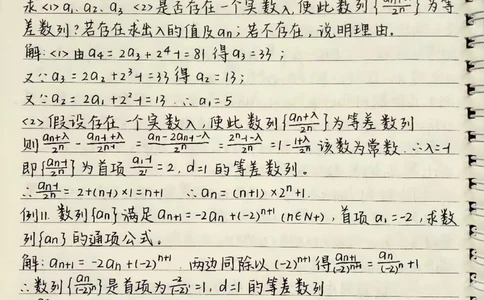 求<1> a₁. a₂. a₃ <2>是否存在一个实数λ,使此数列{(an+λ)/2ⁿ}为等
差数列?若存在求出λ的值及an;若不存在,说明理由。
解:<1>由a₄=2a₃+2⁴-1=81得a₃=33;
又∵a₃=2a₂+2³-1=33得a₂=13;
又∵a₂=2a₁+2²-1=13.∴a₁=5
<2>假设存在一个实数λ,使此数列{(an+λ)/2ⁿ}为等差数列
则(an+λ)/2ⁿ-(an-1+λ)/2ⁿ⁻¹=(an-2an-1-λ)/2ⁿ=(2ⁿ-1-λ)/2ⁿ=1-(1+λ)/2ⁿ该数为常数.∴λ=-1
即{(an-1)/2ⁿ}为首项(a₁-1)/2¹=2,d=1的等差数列。
∴(an-1)/2ⁿ=2+(n-1)×1=n+1 ∴an=(n+1)×2ⁿ+1.
例11.数列{an}满足an+1=-2an+(-2)ⁿ⁺¹(n∈N+),首项a₁=-2,求数
列{an}的通项公式。
解:an+1=-2an+(-2)ⁿ⁺¹,两边同除以(-2)ⁿ⁺¹得an+1/(-2)ⁿ⁺¹=an/(-2)ⁿ+1
∴数列{an/(-2)ⁿ}是首项为-2/(-2)=1,d=1的等差数列